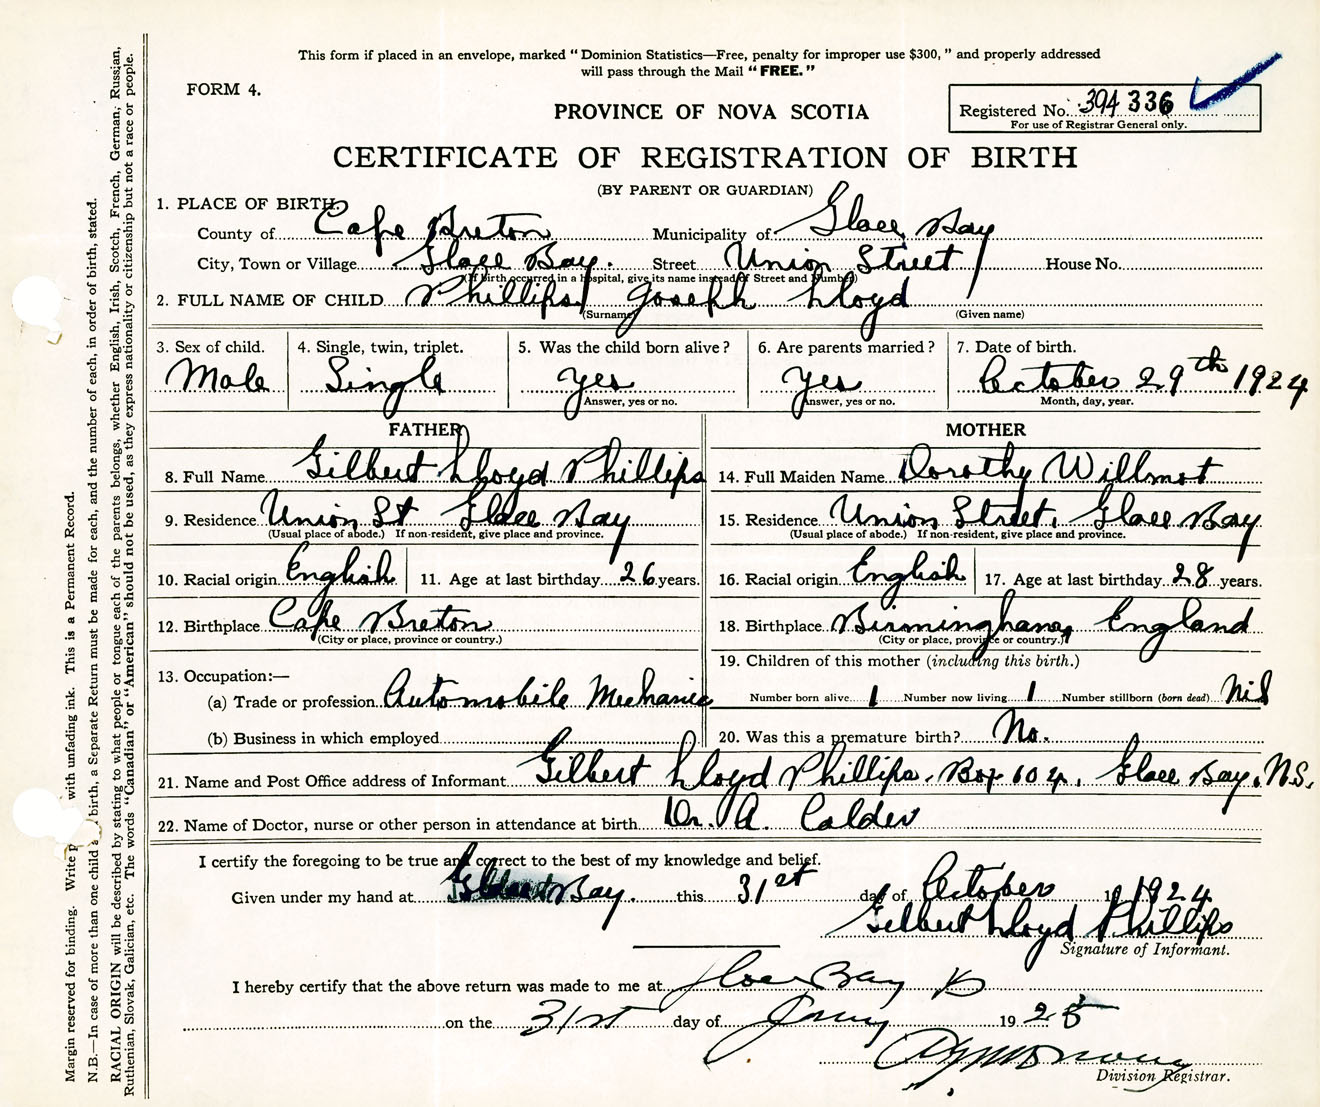 This form if placed in an envelope, marked "Dominion Statistics—Free, penalty for improper use $300," and properly addressed
will pass through the Mail "FREE."
FORM 4.
PROVINCE OF NOVA SCOTIA
Registered No. 394 336
For use of Registrar General only.
CERTIFICATE OF REGISTRATION OF BIRTH
(BY PARENT OR GUARDIAN)
1. PLACE OF BIRTH.
County of Cape Breton Municipality of Glace Bay
City, Town or Village Glace Bay. Street Union Street House No.
(If birth occurred in a hospital, give its name instead of Street and Number)
2. FULL NAME OF CHILD Phillips Joseph Lloyd
(Surname) (Given name)
3. Sex of child. 4. Single, twin, triplet. 5. Was the child born alive? 6. Are parents married? 7. Date of birth.
Male Single Yes Yes October 29th 1924
Answer, yes or no. Answer, yes or no. Month, day, year.
FATHER MOTHER
8. Full Name Gilbert Lloyd Phillips 14. Full Maiden Name Dorothy Willmot
9. Residence Union St Glace Bay 15. Residence Union Street. Glace Bay
(Usual place of abode.) If non-resident, give place and province. (Usual place of abode.) If non-resident, give place and province.
10. Racial origin English 11. Age at last birthday 26 years. 16. Racial origin English 17. Age at last birthday 28 years.
12. Birthplace Cape Breton 18. Birthplace Birmingham, England
(City or place, province or country.) (City or place, province or country.)
19. Children of this mother (including this birth.)
13. Occupation:—
(a) Trade or profession Automobile Mechanic Number born alive 1 Number now living 1 Number stillborn (born dead) Nil
(b) Business in which employed 20. Was this a premature birth? No.
21. Name and Post Office address of Informant Gilbert Lloyd Phillips. Box 604. Glace Bay. N.S.
22. Name of Doctor, nurse or other person in attendance at birth Dr. A. Calder
I certify the foregoing to be true and correct to the best of my knowledge and belief.
Given under my hand at Glace Bay. this 31st day of October 1924
Gilbert Lloyd Phillips
Signature of Informant.
I hereby certify that the above return was made to me at Glace Bay
on the 31st day of Jany 1925
Division Registrar.
Margin reserved for binding. Write with unfading ink. This is a Permanent Record.
N.B.—In case of more than one child birth, a Separate Return must be made for each, and the number of each, in order of birth, stated.
RACIAL ORIGIN will be described by stating to what people or tongue each of the parents belongs, whether English, Irish, Scotch, French, German, Russian,
Ruthenian, Slovak, Galician, etc. The words "Canadian" or "American" should not be used, as they express nationality or citizenship but not a race or people.